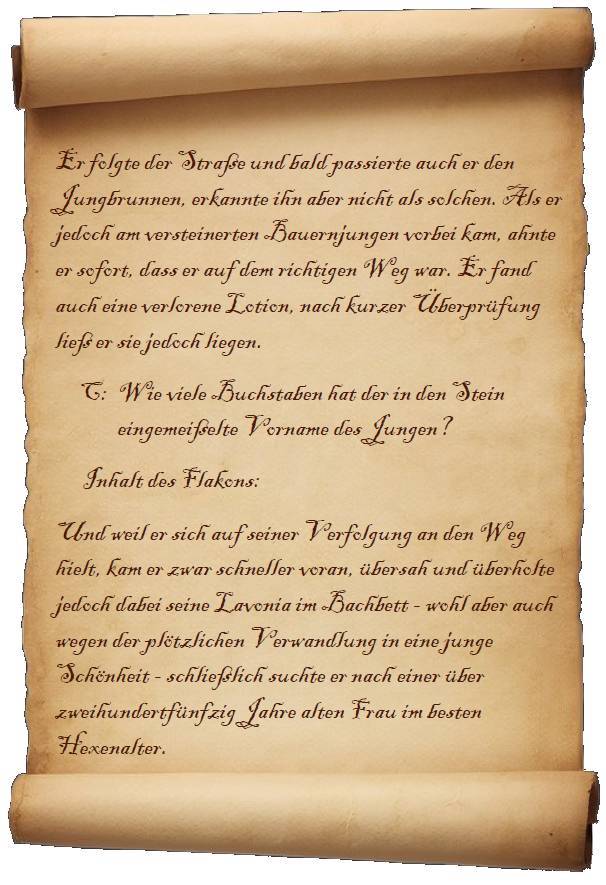 Er folgte der Straße und bald passierte auch er den
Jungbrunnen, erkannte ihn aber nicht als solchen. Als er
jedoch am versteinerten Bauernjungen vorbei kam, ahnte
er sofort, dass er auf dem richtigen Weg war. Er fand
auch eine verlorene Lotion, nach kurzer Überprüfung
ließ er sie jedoch liegen.
C: Wie viele Buchstaben hat der in den Stein
eingemeißelte Vorname des Jungen?
Inhalt des Flakons:
Und weil er sich auf seiner Verfolgung an den Weg
hielt, kam er zwar schneller voran, übersah und überholte
jedoch dabei seine Lavonia im Bachbett - wohl aber auch
wegen der plötzlichen Verwandlung in eine junge
Schönheit - schließlich suchte er nach einer über
zweihundertfünfzig Jahre alten Frau im besten
Hexenalter.